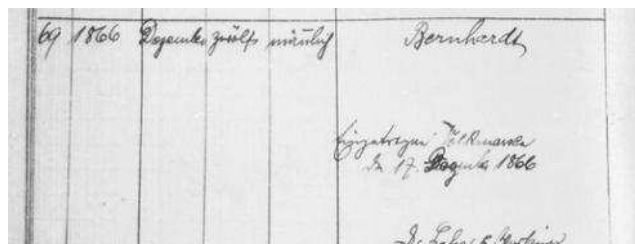 69 1866 Dezember zwölf männlich Bernhardt
Eingetragen Volkmarsen
den 17. Dezember 1866